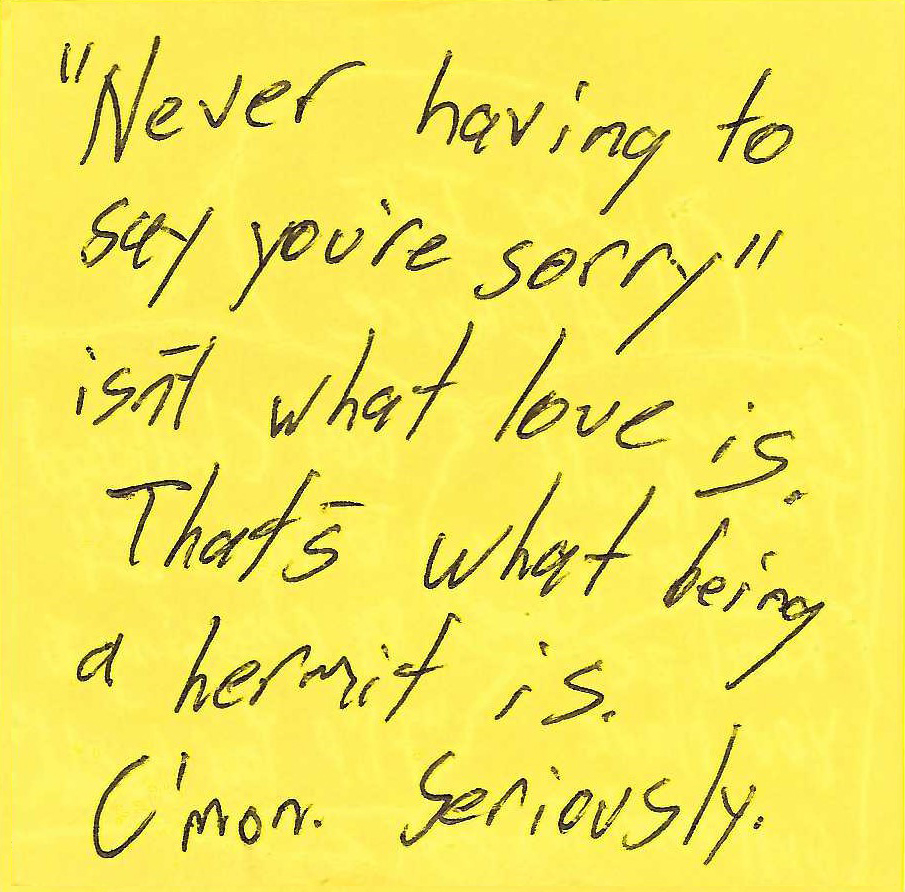 "Never having to
say you're sorry"
isn't what love is.
That's what being
a hermit is.
C'mon. Seriously.